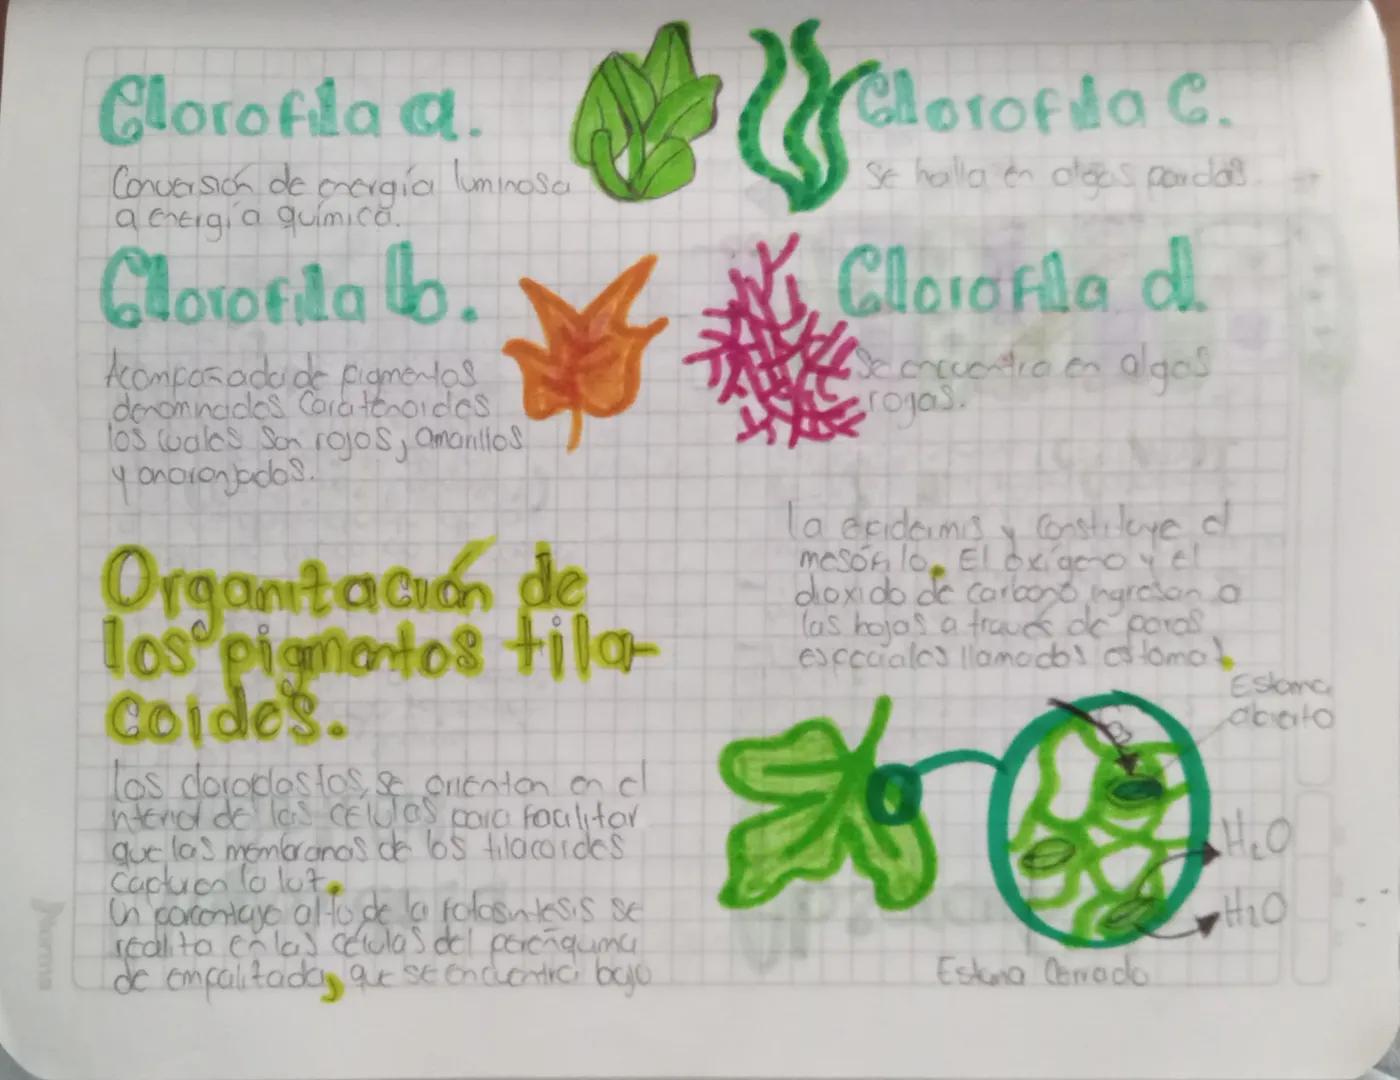 Clorofila a.
Conversión de energía luminosa
a energía química.
Clorofila b.
Acompañada de pigmentos
denominados Carotenoides
los cuales son rojos, amarillos
y anaranjados.
Clorofila C.
Se halla en algas pardas.
Clorofila d.
Se encuentra en algas
rojas.
Organización de
los pigmentos tila-
coides.
Los cloroplastos, se orientan en el
interior de las células para facilitar
que las membranas de los tilacoides
capturen la luz.
Un porcentaje alto de la fotosíntesis se
realiza en las células del parénquima
de empalizada, que se encuentra bajo
la epidermis y constituye el
mesófilo. El oxígeno y el
dioxido de carbono ingresan a
las hojas a través de poros
especiales llamados estomas.
Estoma
abierto
H2O
H2O
Estoma Cerrado